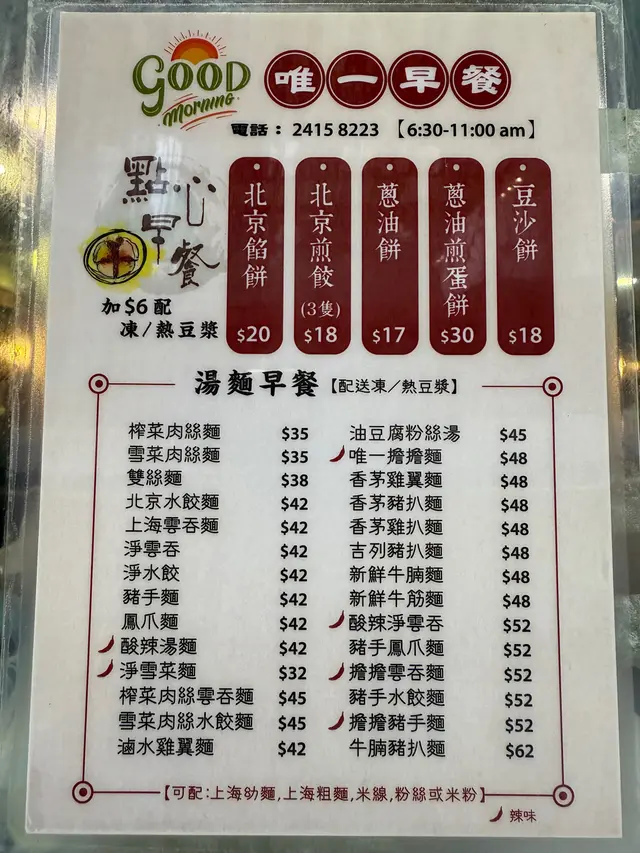 GOOD
Morning
唯一早餐
電話： 2415 8223 【6:30-11:00 am】
點心早餐
加$6配
凍/熱豆漿
北京餡餅 $20
北京煎餃(3隻) $18
蔥油餅 $17
蔥油煎蛋餅 $30
豆沙餅 $18
湯麵早餐【配送凍/熱豆漿】
榨菜肉絲麵 $35
雪菜肉絲麵 $35
雙絲麵 $38
北京水餃麵 $42
上海雲吞麵 $42
淨雲吞 $42
淨水餃 $42
豬手麵 $42
鳳爪麵 $42
酸辣湯麵 $42
淨雪菜麵 $32
榨菜肉絲雲吞麵 $45
雪菜肉絲水餃麵 $45
滷水雞翼麵 $42
油豆腐粉絲湯 $45
唯一擔擔麵 $48
香茅雞翼麵 $48
香茅豬扒麵 $48
香茅雞扒麵 $48
吉列豬扒麵 $48
新鮮牛腩麵 $48
新鮮牛筋麵 $48
酸辣淨雲吞 $52
豬手鳳爪麵 $52
擔擔雲吞麵 $52
豬手水餃麵 $52
擔擔豬手麵 $52
牛腩豬扒麵 $62
【可配:上海幼麵,上海粗麵,米線,粉絲或米粉】
辣味